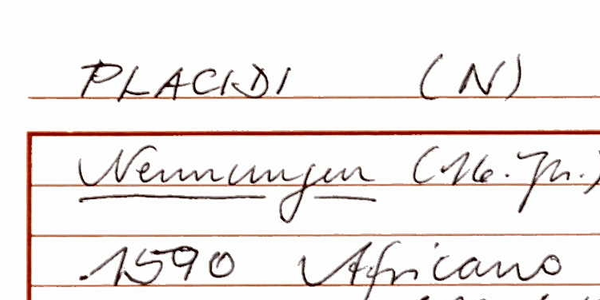 PLACIDI (N)
Nennungen (16. Jh.)
.1590 Africano